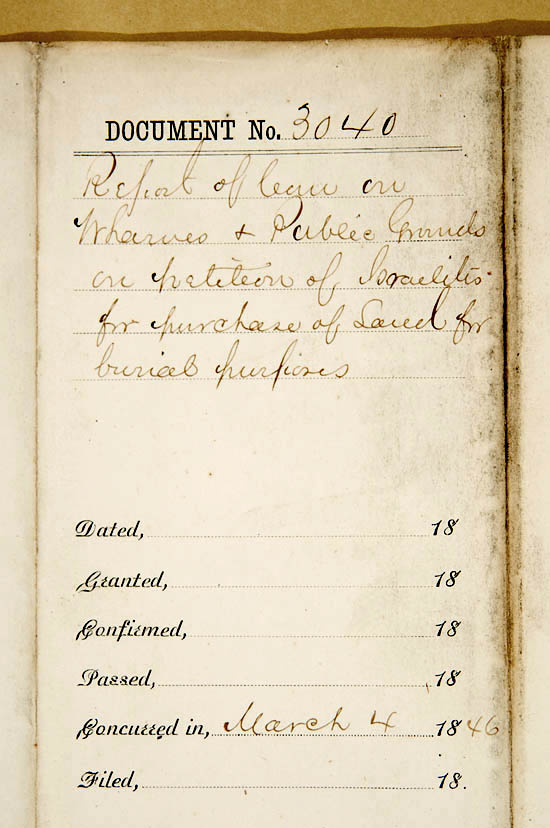 DOCUMENT No. 3040
Report of Com on
Wharves & Public Grounds
on petition of Israelites
for purchase of Land for
burial purposes
Dated, 18
Granted, 18
Confirmed, 18
Passed, 18
Concurred in, March 4 1846
Filed, 18.